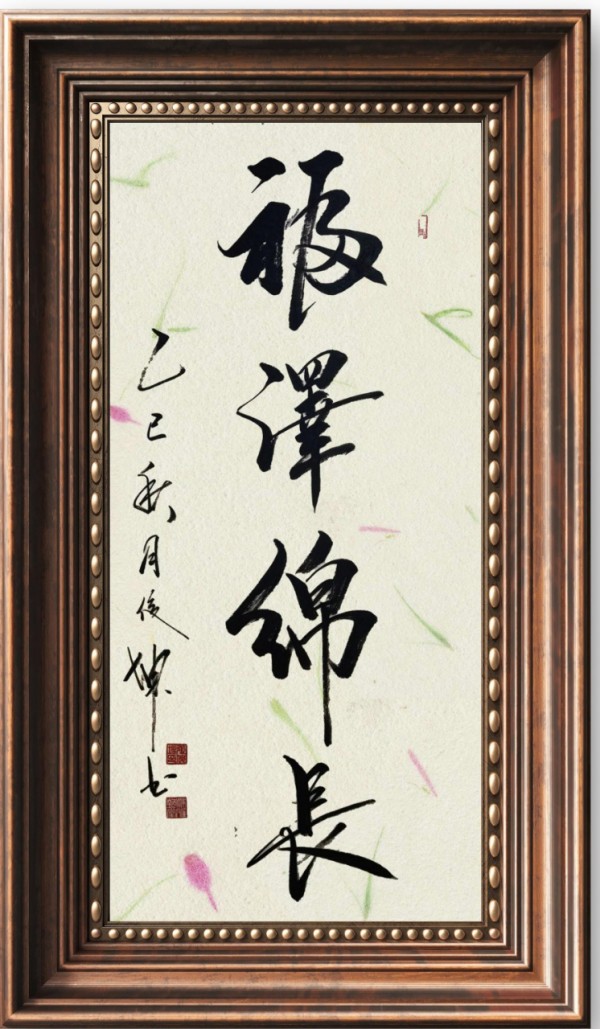 福澤綿長
乙巳秋月俊坤书